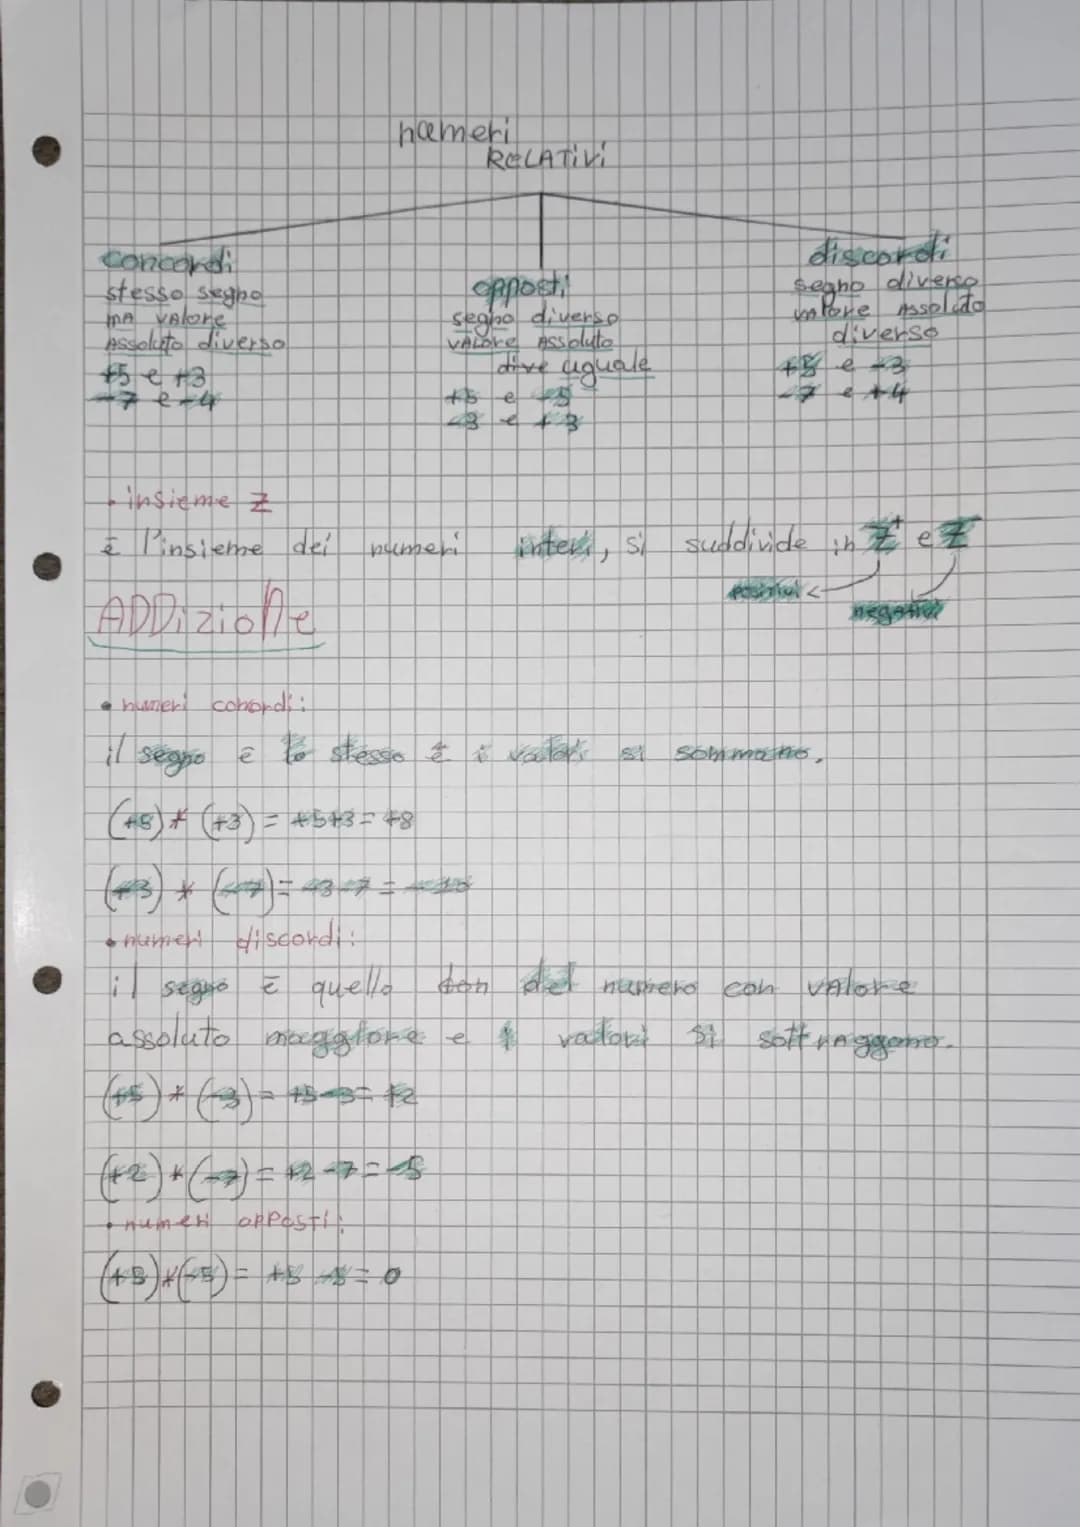 numeri
RELATIVI
concordi
stesso segno
MA VALORE
Assoluto diverso
+5 e +3
-7 e -4
opposti
segno diverso
VALORE Assoluto
uguale
+5 e -5
-3 e +3
discordi
segno diverso
valore Assoluto
diverso
+5 e -3
-7 e +4
• insieme Z
è l'insieme dei numeri interi, si suddivide in Z⁺ e Z⁻
positivi
negativi
ADDizione
• numeri conordi:
il segno è lo stesso e i valori si sommano.
(+5) + (+3) = +5+3 = +8
(-3) + (-7) = -3-7 = -10
• numeri discordi:
il segno è quello del numero con VALORE
assoluto maggiore e i valori si sottraggono.
(+5) + (-3) = +5-3= +2
(+2) + (-7) = +2-7 = -5
• numeri opposti:
(+5)+(-5) = +5 -5 = 0